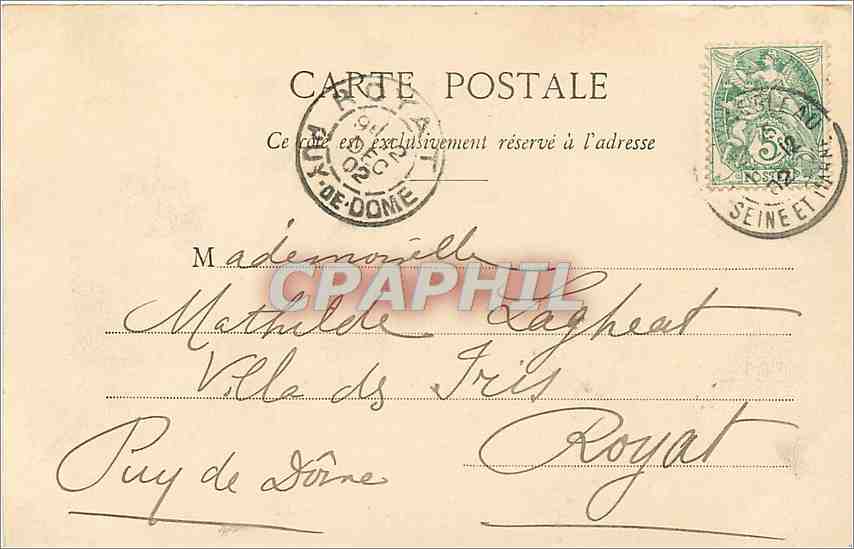 CARTE POSTALE
Ce côté est exclusivement réservé à l'adresse
ROYAT
PUY-DE-DOME
DEC
02
5c
POSTES
12
02
SEINE ET MARNE
Mademoiselle
CPAPHIL
Mathilde
Villa des Iris
Royat
Puy de Dôme